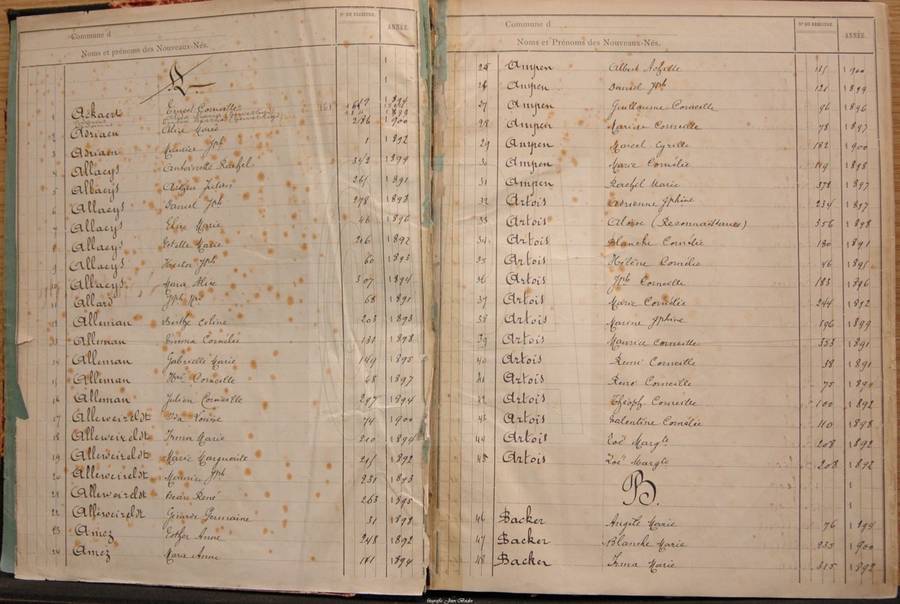 Commune d
Nos DU REGISTRE.
ANNÉE.
Noms et prénoms des Nouveaux-Nés.
A
1 Ackaert Ernest Corneille
2 Adriaen Alix Marie 286 1900
3 Adriaen Maurice Jph 1 1892
4 Allaeys Antoinette Rachel 342 1899
5 Allaeys Julien 261 1891
6 Allaeys Daniel Jph 278 1893
7 Allaeys Elise Marie 46 1896
8 Allaeys Estelle Marie 246 1892
9 Allaeys Hector Jph 60 1893
10 Allaeys Mara Alix 307 1894
11 Allard Jph 68 1891
12 Alleman Berthe Celine 203 1893
13 Alleman Emma Cornélie 131 1898
14 Alleman Gabrielle Marie 149 1895
15 Alleman Hri Corneille 68 1897
16 Alleman Julien Corneille 297 1894
17 Alleweireldt Ida Louise 74 1900
18 Alleweireldt Irma Marie 200 1899
19 Alleweireldt Marie Marguerite 215 1892
20 Alleweireldt Maurice Jph 231 1893
21 Alleweireldt René 263 1895
22 Alleweireldt Germaine 31 1898
23 Amez Esther Anne 248 1892
24 Amez Mara Anne 181 1894
Commune d
Nos DU REGISTRE.
ANNÉE.
Noms et Prénoms des Nouveaux-Nés.
25 Ampen Albert Achille 1900
26 Ampen Daniel Jph 121 1899
27 Ampen Guillaume Corneille 96 1896
28 Ampen Marie Corneille 78 1897
29 Ampen Marcel Cyrille 182 1900
30 Ampen Marie Cornélie 149 1898
31 Ampen Rachel Marie 378 1897
32 Artois Adrienne Jphine 234 1897
33 Artois Aloïse (Reconnaissance) 356 1898
34 Artois Blanche Cornélie 180 1891
35 Artois Hélène Cornélie 46 1895
36 Artois Jph Corneille 183 1896
37 Artois Marie Cornélie 244 1892
38 Artois Marine Jphine 196 1899
39 Artois Maurice Corneille 353 1891
40 Artois Remi Corneille 38 1891
41 Artois René Corneille 75 1894
42 Artois Théoph. Corneille 100 1892
43 Artois Valentine Cornélie 110 1898
44 Artois Zoé Margte 208 1892
45 Artois Zoé Margte 208 1892
B.
46 Backer Angèle Marie 76 1894
47 Backer Blanche Marie 235 1900
48 Backer Irma Marie 315 1892